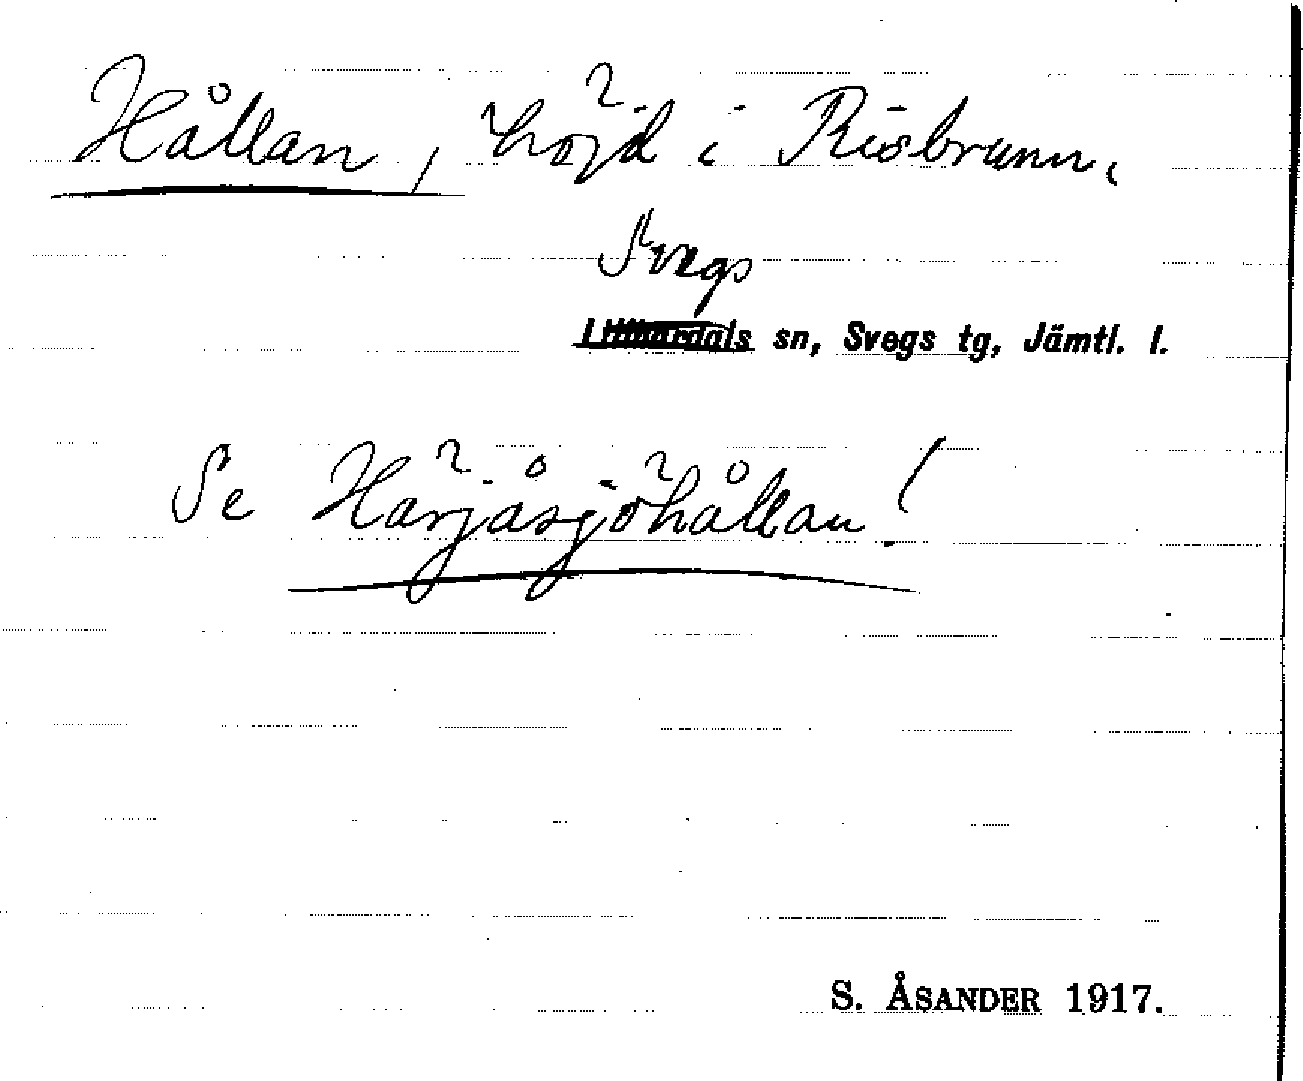 Hållan, höjd i Risbrunn,
Svegs
Lillhärdals sn, Svegs tg, Jämtl. l.
Se Härjåsjöhållan!
S. ÅSANDER 1917.